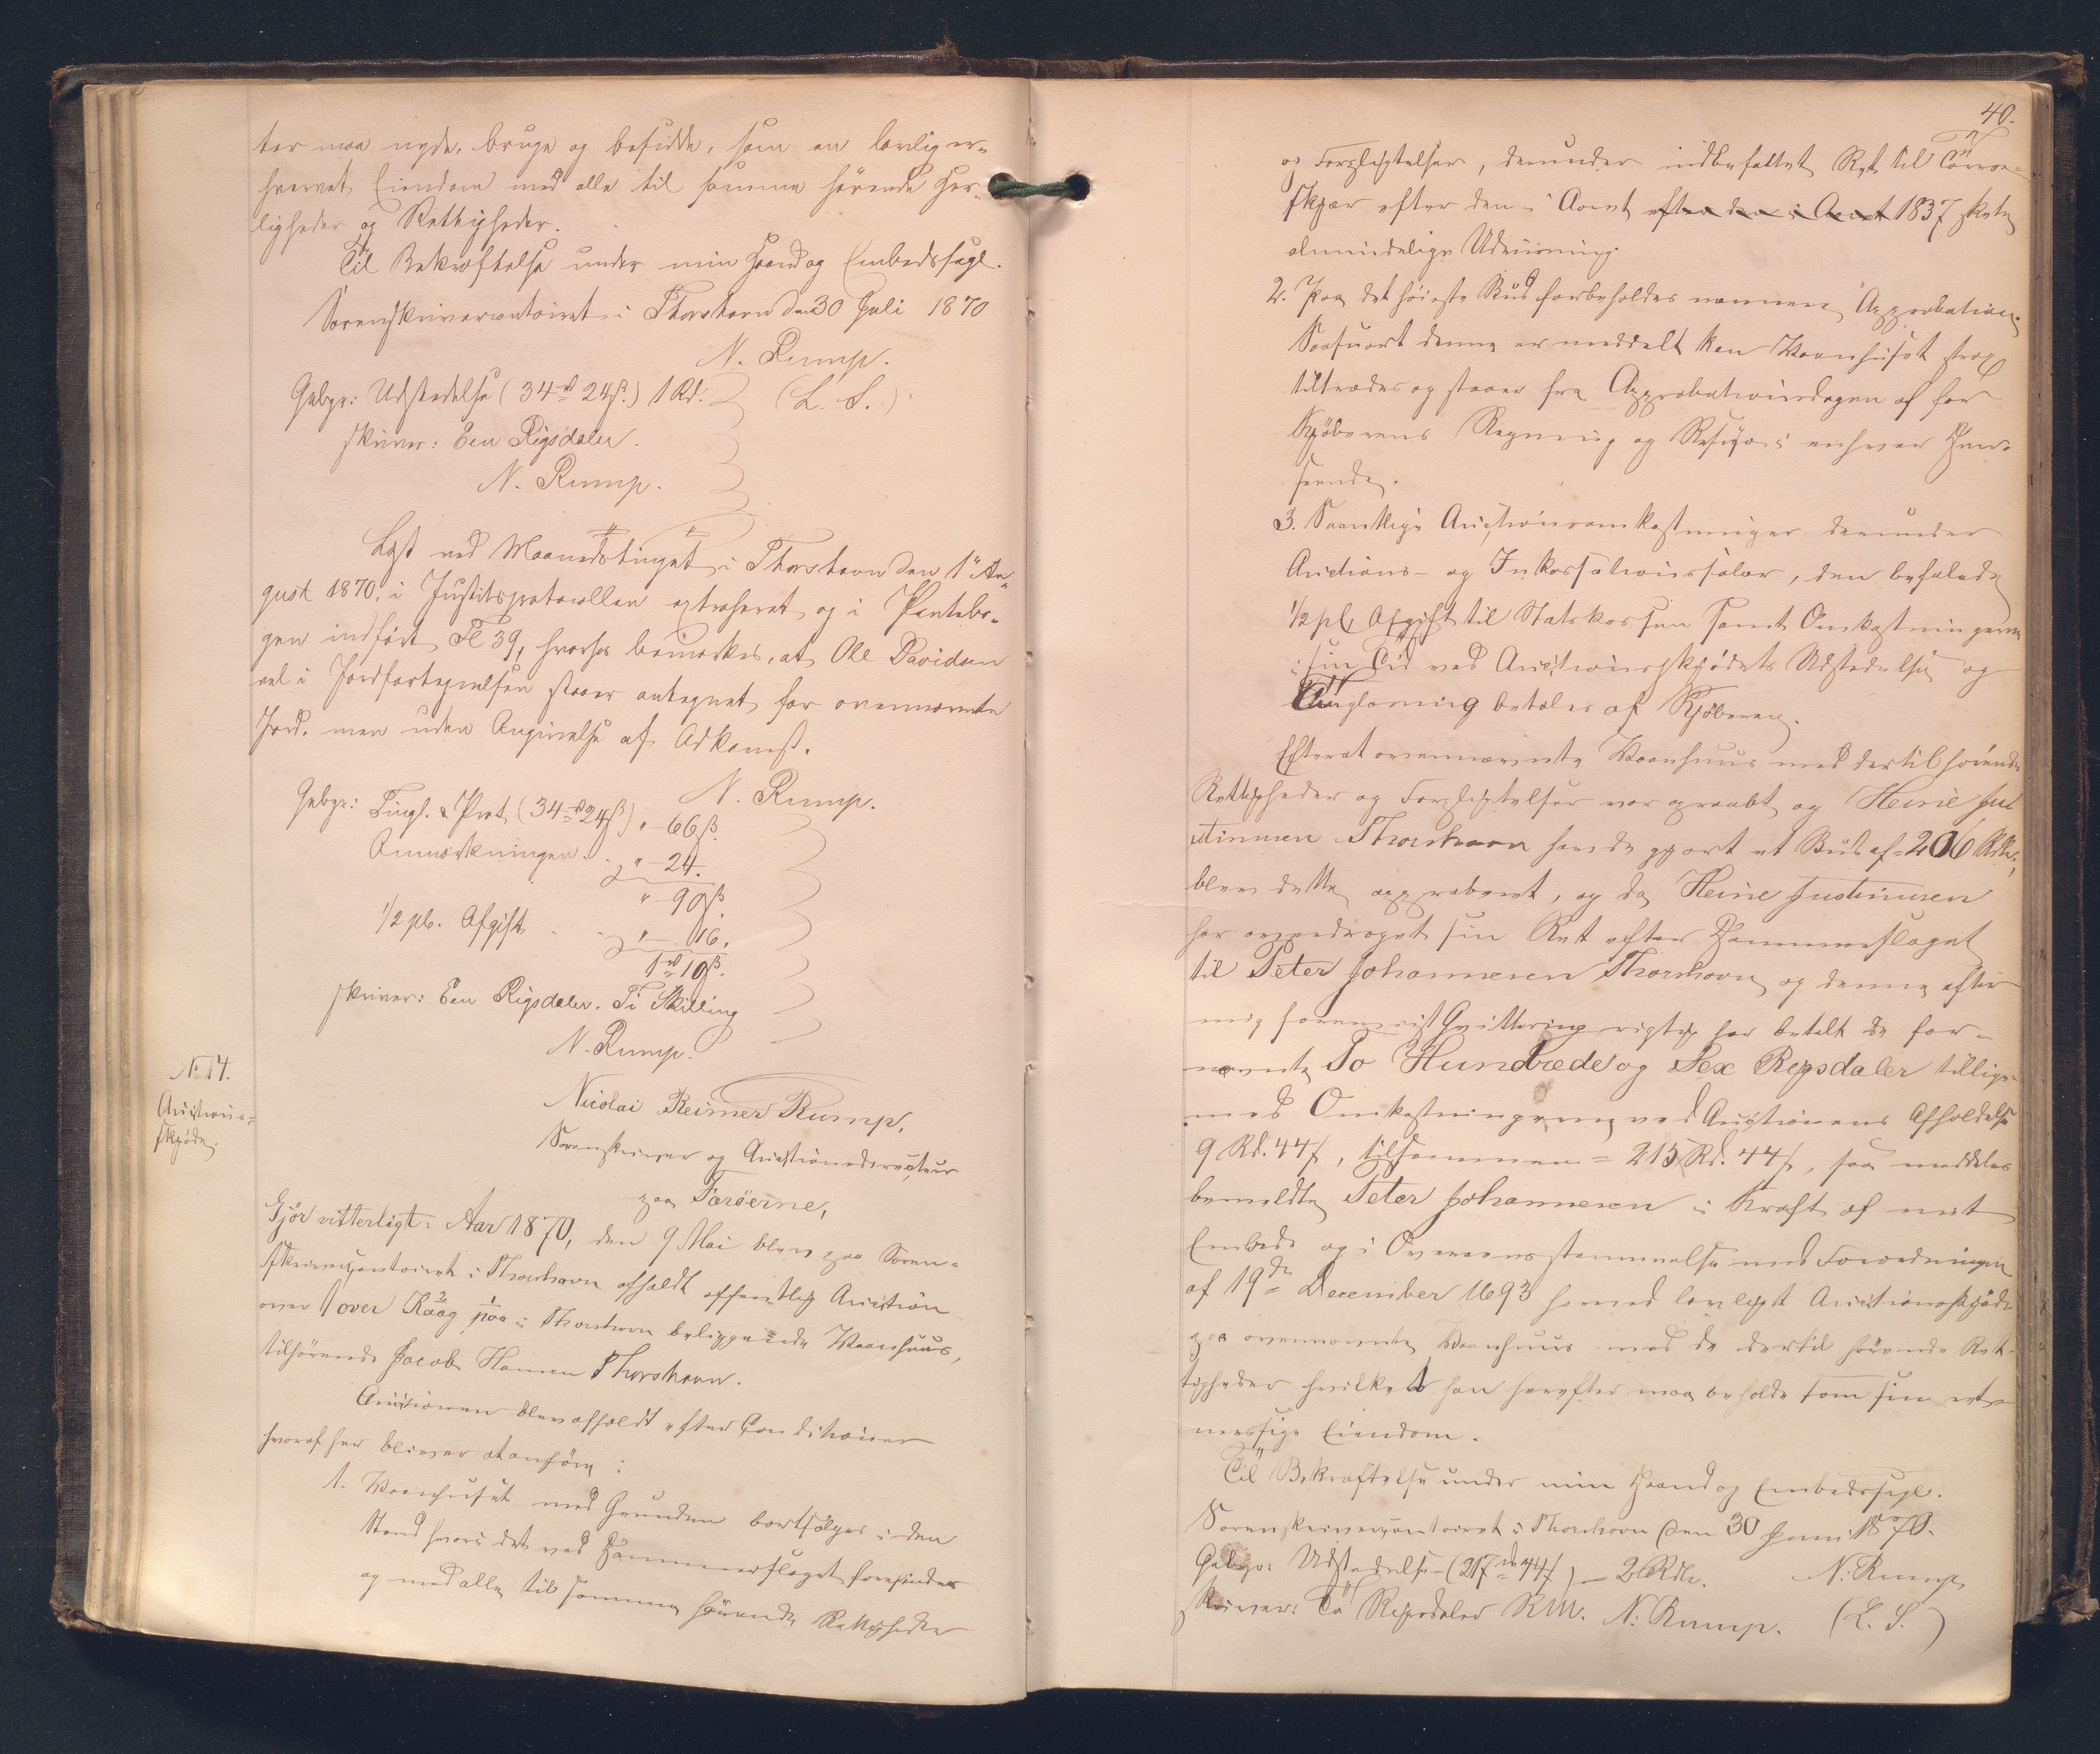 ter maa nyde, bruge og besidde, som en lovlig er-
hvervet Eiendom med alle til samme hørende Her-
ligheder og Rettigheder.
Til Bekræftelse under min Haand og Embedssegl.
Sorenskrivercontoiret i Thorshavn den 30 Juli 1870
N. Rump.
Gebyr: Udstedelse (34 rd 24 ß.) 1 Rd. (L. S.)
skriver: Een Rigsdaler.
N. Rump.
Læst ved Maanedstinget i Thorshavn den 1" Au-
gust 1870, i Justitsprotocollen extraheret og i Pantebo-
gen indført Fl 39, hvorhos bemærkes, at Ole Davidsen
vel i Jordfortegnelsen staaer antegnet for ovennævnte
Jord, men uden Angivelse af Adkomst.
N. Rump.
Gebyr: Tingl. & Prot. (34 rd 24 ß) " - 66 ß.
Anmærkningen . . " - 24.
" - 90 ß
1/2 pC. Afgift . . " - 16.
1 rd 10 ß.
skriver: Een Rigsdaler. Ti Skilling
N. Rump.
No 14.
Auctions-
skjøde.
Nicolai Reimer Rump,
Sorenskriver og Auctionsdirecteur
paa Færøerne,
Gjør vitterligt: Aar 1870, den 9 Mai blev paa Soren-
skrivercontoiret i Thorshavn afholdt offentlig Auction
over 1 over Raag paa i Thorshavn beliggende Vaanhuus,
tilhørende Jacob Hansen Thorshavn.
Auctionen blev afholdt efter Conditioner
hvoraf her bliver at anføre:
1. Vaanhuset med Grunden bortsælges i den
Stand hvori det ved Hammerslaget forefindes
og med alle til samme hørende Rettigheder
40.
og Forpligtelser, derunder indbefattet Ret til Tørve-
skjær efter den i Aaret efter den i Aaret 1837 skete
almindelige Udviisning.
2. Paa det høieste Bud forbeholdes nærmere Approbation.
Saasnart denne er meddelt kan Vaanhuset strax
tiltrædes og staaer fra Approbationsdagen af for
Kjøberens Regning og Risico i enhver Hen-
seende.
3. Samtlige Auctionsomkostninger derunder
Auctions- og Inkassationssalær, den befalede
1/2 pC. Afgift til Statskassen samt Omkostningerne
i sin Tid ved Auctionsskjødets Udstedelse og
Tinglæsning betales af Kjøberen.
Efterat ovennævnte Vaanhuus med dertil hørende
Rettigheder og Forpligtelser var opraabt og Heine Ju-
stinusen Thorshavn havde gjort et Bud af 206 Rdlr,
blev dette approberet, og da Heine Justinusen
har overdraget sin Ret efter Hammerslaget
til Peter Johannesen Thorshavn og denne efter
mig foreviist Qvittering rigtig har betalt de for-
nævnte To Hundrede og Sex Rigsdaler tillige-
med Omkostningerne ved Auctionens Afholdelse
9 Rd. 44 ß, tilsammen = 215 Rd. 44 ß, saa meddeles
bemeldte Peter Johannesen i Kraft af mit
Embede og i Overeensstemmelse med Forordningen
af 19de December 1693 hermed lovligt Auctionsskjøde
paa ovennævnte Vaanhuus med de dertil hørende Ret-
tigheder hvilket han herefter maa beholde som sin ret-
mæssige Eiendom.
Til Bekræftelse under min Haand og Embedssegl.
Sorenskrivercontoiret i Thorshavn den 30 Juni 1870.
Gebyr: Udstedelse (217 rd 44 ß) - 2 Rdlr. N. Rump
skriver: To Rigsdaler RM. N. Rump. (L. S.)